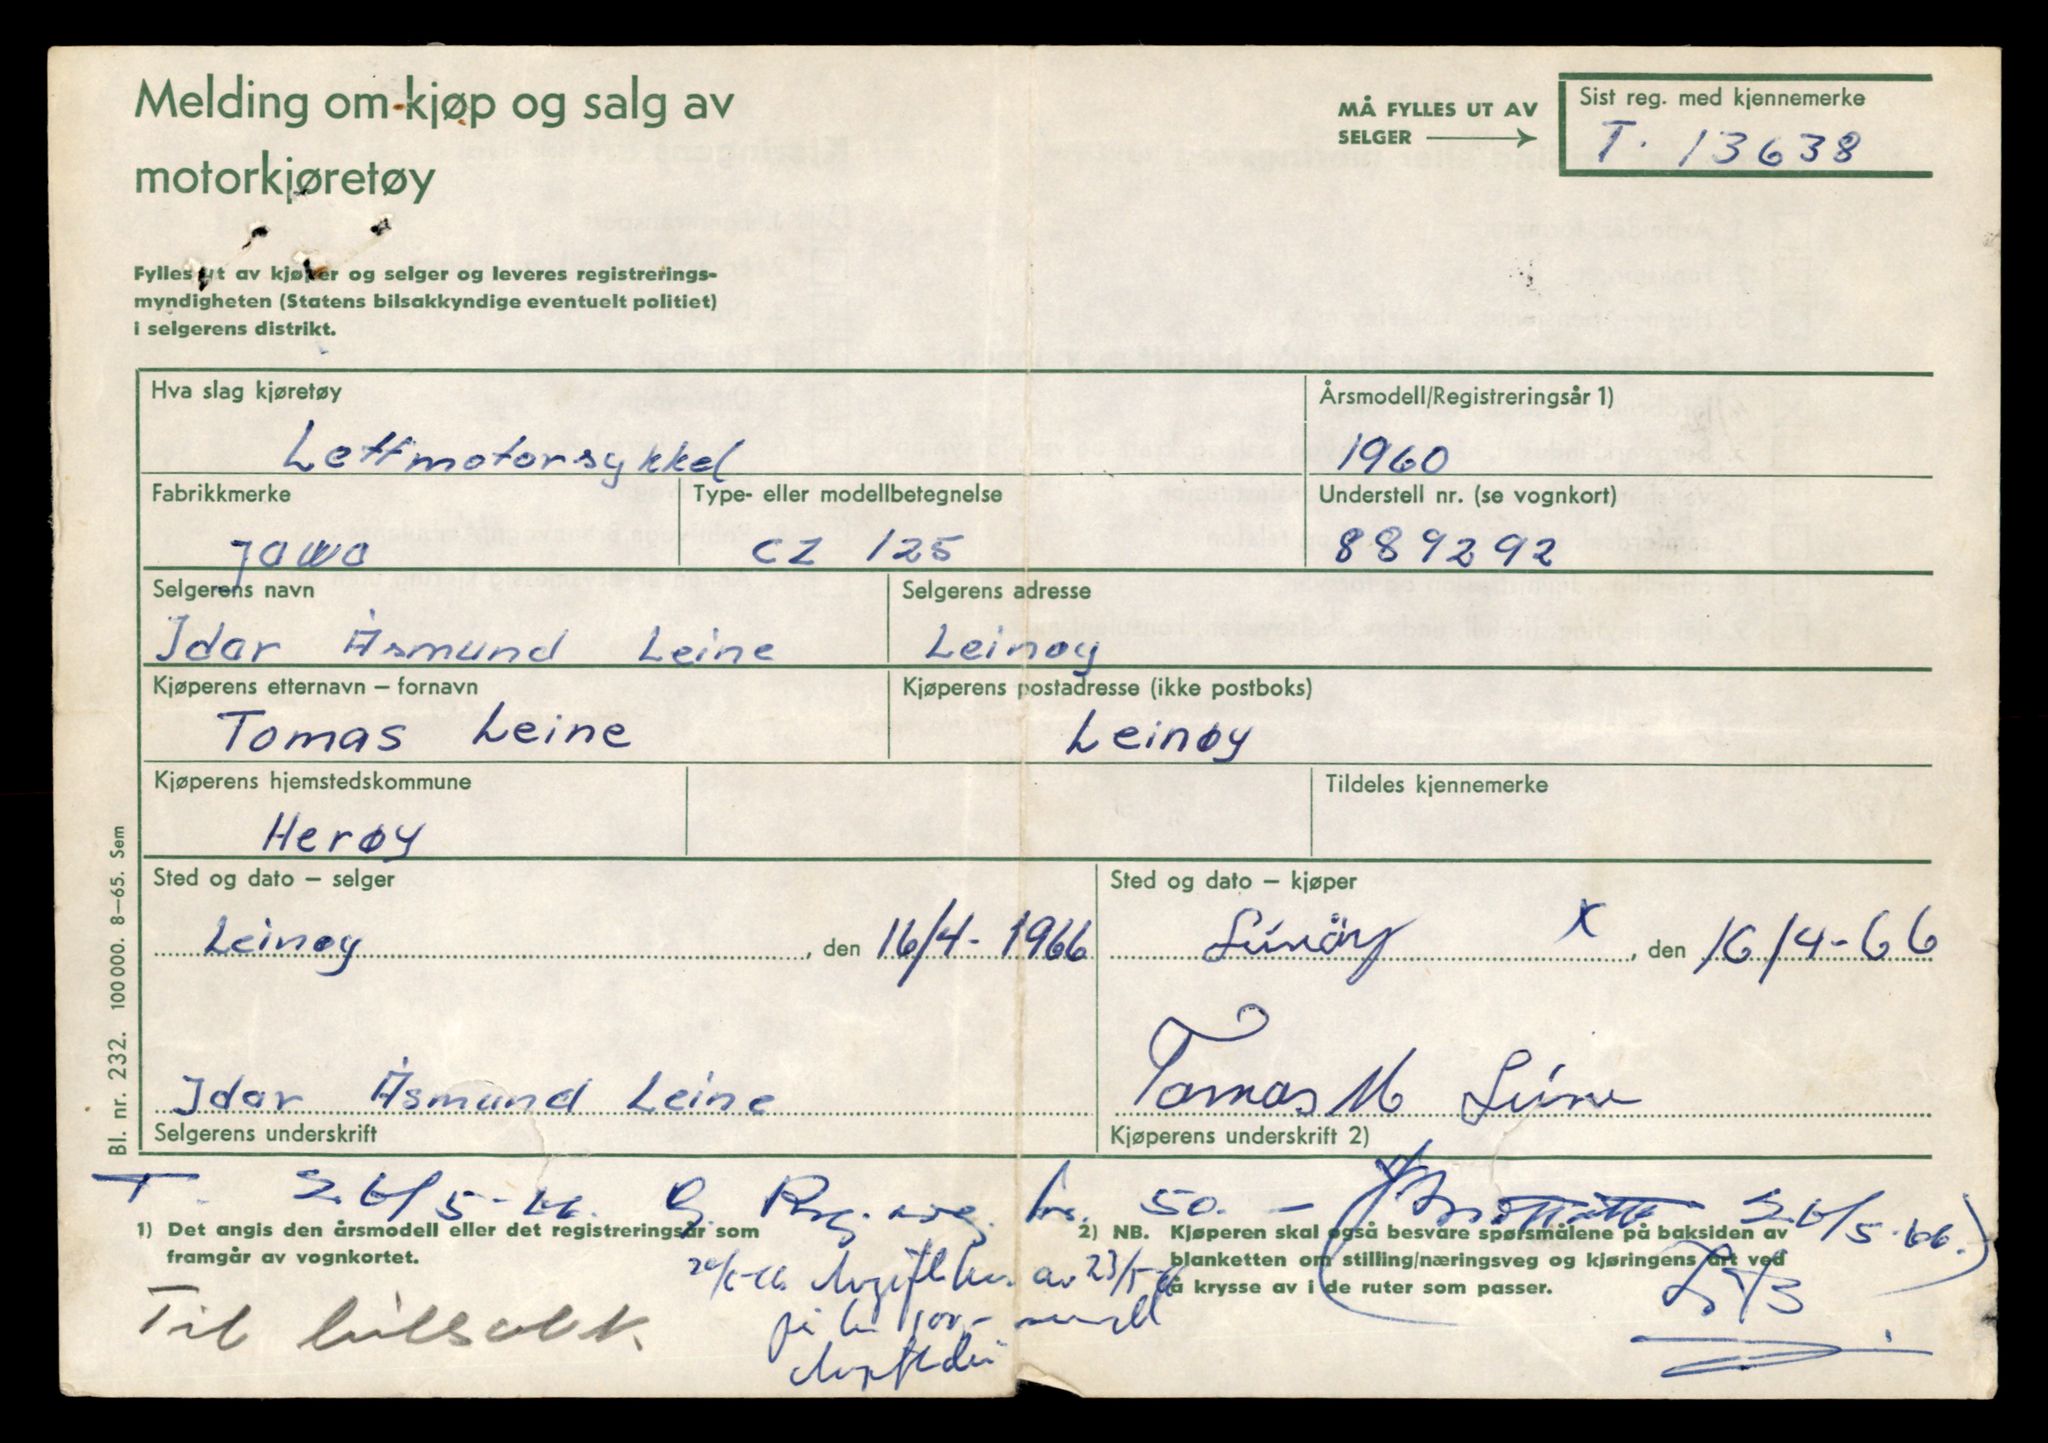 Melding om kjøp og salg av
motorkjøretøy
MÅ FYLLES UT AV
SELGER
Sist reg. med kjennemerke
T. 13638
Fylles ut av kjøper og selger og leveres registrerings-
myndigheten (Statens bilsakkyndige eventuelt politiet)
i selgerens distrikt.
Hva slag kjøretøy
Årsmodell/Registreringsår 1)
Lettmotorsykkel
1960
Fabrikkmerke
Type- eller modellbetegnelse
Understell nr. (se vognkort)
Jawa
CZ 125
889292
Selgerens navn
Selgerens adresse
Idar Åsmund Leine
Leinøy
Kjøperens etternavn – fornavn
Kjøperens postadresse (ikke postboks)
Tomas Leine
Leinøy
Kjøperens hjemstedskommune
Tildeles kjennemerke
Herøy
Sted og dato – selger
Sted og dato – kjøper
Leinøy, den 16/4- 1966
Leinöy X, den 16/4-66
Idar Åsmund Leine
Tomas M Leine
Selgerens underskrift
Kjøperens underskrift 2)
T. 26/5-66. Reg. avg. kr. 50.- 26/5-66.)
1) Det angis den årsmodell eller det registreringsår som
framgår av vognkortet.
2) NB. Kjøperen skal også besvare spørsmålene på baksiden av
blanketten om stilling/næringsveg og kjøringens art ved
å krysse av i de ruter som passer.
av 23/5-66
på kr 100,-
Til bilsakk.
Bl. nr. 232. 100 000. 8–65. Sem